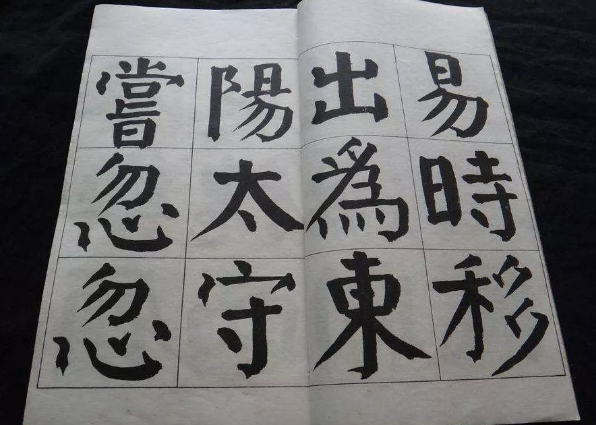 易時移
出為東
陽太守
嘗忽忽